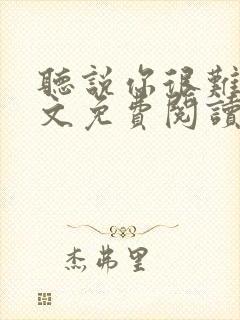 聽說你很難
文免費閱讀
杰弗里